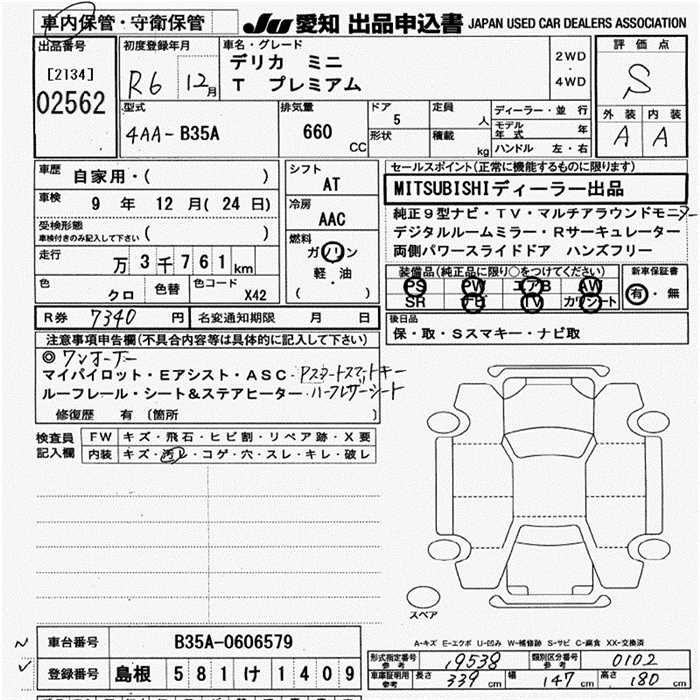 車内保管・守衛保管
JU 愛知 出品申込書 JAPAN USED CAR DEALERS ASSOCIATION
出品番号
[2134]
02562
初度登録年月
R6 12月
車名・グレード
デリカ ミニ
T プレミアム
2WD
・
4WD
評価点
S
外装 内装
A A
型式
4AA-B35A
排気量
660 CC
ドア
5
形状
定員
人
積載
kg
ディーラー・並行
モデル年式 年
ハンドル 左・右
車歴
自家用・( )
車検
9 年 12 月( 24 日)
受検形態
車検付きのみ記入して下さい ( )
走行
万 3千761km
色
クロ
色替
色コード
X42
シフト
AT
冷房
AAC
燃料
ガソリン
軽・油
( )
セールスポイント(正常に機能するものに限ります)
MITSUBISHIディーラー出品
純正9型ナビ・TV・マルチアラウンドモニター
デジタルルームミラー・Rサーキュレーター
両側パワースライドドア ハンズフリー
装備品(純正品に限り○をつけてください)
PS PW エアB AW
SR ナビ TV カワシート
新車保証書
有・無
R券 7340 円
名変通知期限 月 日
後日品
保・取・Sスマキー・ナビ取
注意事項申告欄(不具合内容等は具体的に記入して下さい)
◎ワンオーナー
マイパイロット・Eアシスト・ASC・Pスタートスマートキー
ルーフレール・シート&ステアヒーター・ハーフレザーシート
修復歴 有 〔箇所 〕
検査員記入欄
FW キズ・飛石・ヒビ割・リペア跡・X要
内装 キズ・汚レ・コゲ・穴・スレ・キレ・破レ
スペア
A-キズ E-エクボ U-凹み W-補修跡 S-サビ C-腐食 XX-交換済
車台番号 B35A-0606579
登録番号 島根 581 け 1409
形式指定番号 参考 19538
類別区分番号 参考 0102
車庫証明用 参考 長さ 339 cm 幅 147 cm 高さ 180 cm